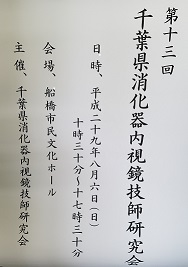 第十三回
千葉県消化器内視鏡技師研究会
日時、平成二十九年八月六日（日）
十時三十分～十七時三十分
会場、船橋市民文化ホール
主催、千葉県消化器内視鏡技師研究会